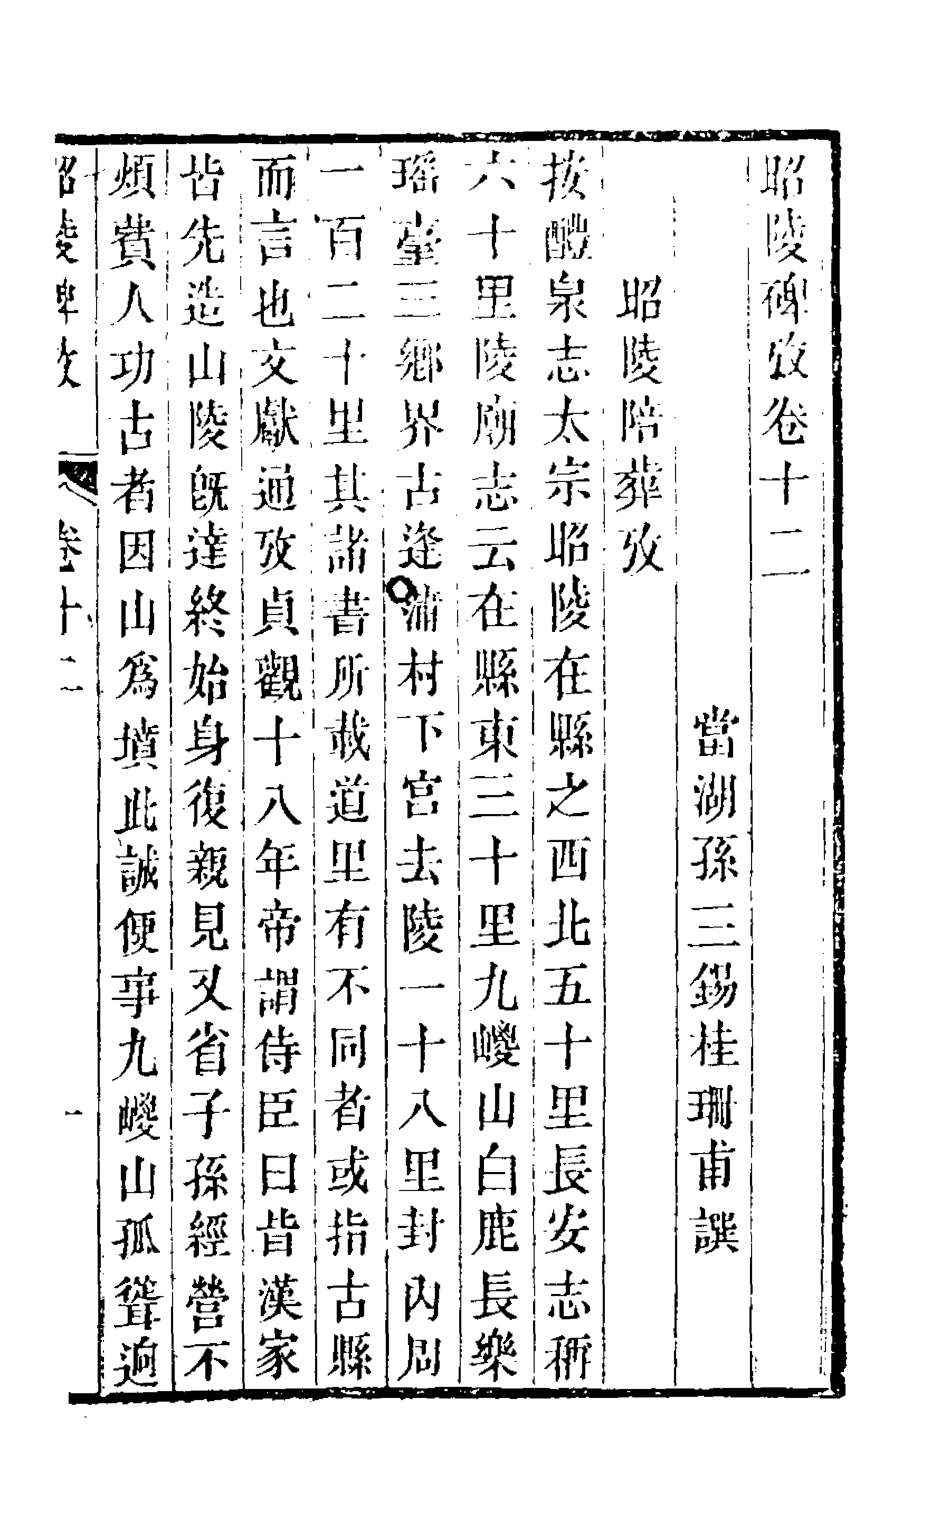 昭陵碑攷卷十二
當湖孫三錫桂珊甫譔
昭陵陪葬攷
按醴泉志太宗昭陵在縣之西北五十里長安志稱
六十里陵廟志云在縣東三十里九嵕山白鹿長樂
瑶臺三鄉界古逢蒲村下宫去陵一十八里封内周
一百二十里其諸書所載道里有不同者或指古縣
而言也文獻通攷貞觀十八年帝謂侍臣曰昔漢家
皆先造山陵旣達終始身復親見又省子孫經營不
煩費人功古者因山爲墳此誠便事九嵕山孤聳迥
昭陵碑攷 卷十二 一